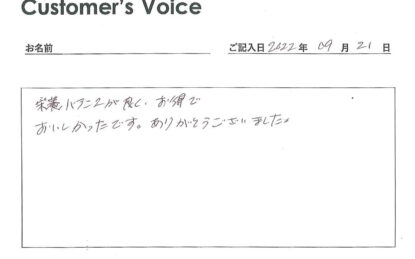 Customer's Voice
お名前
ご記入日 2022 年 09 月 21 日
栄養バランスが良く、お得で
おいしかったです。ありがとうございました。